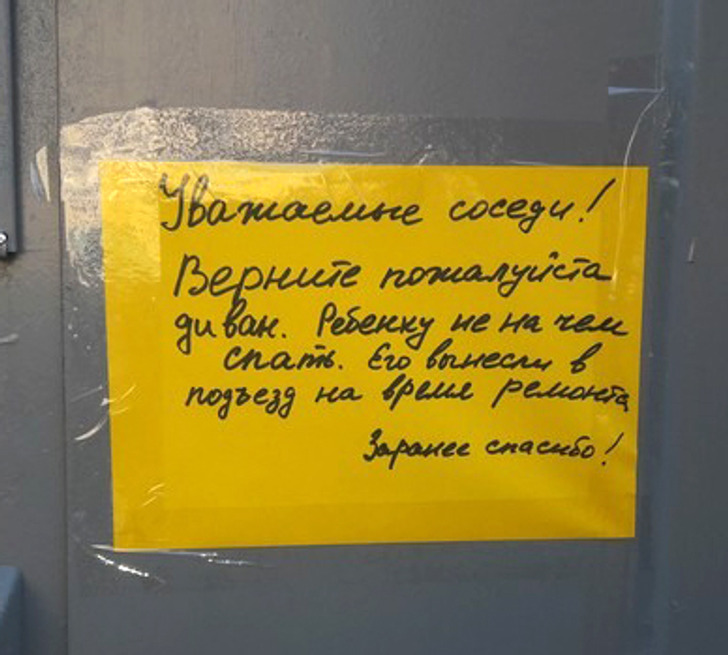 Уважаемые соседи!
Верните пожалуйста
диван. Ребенку не на чем
спать. Его вынесли в
подъезд на время ремонта
Заранее спасибо!